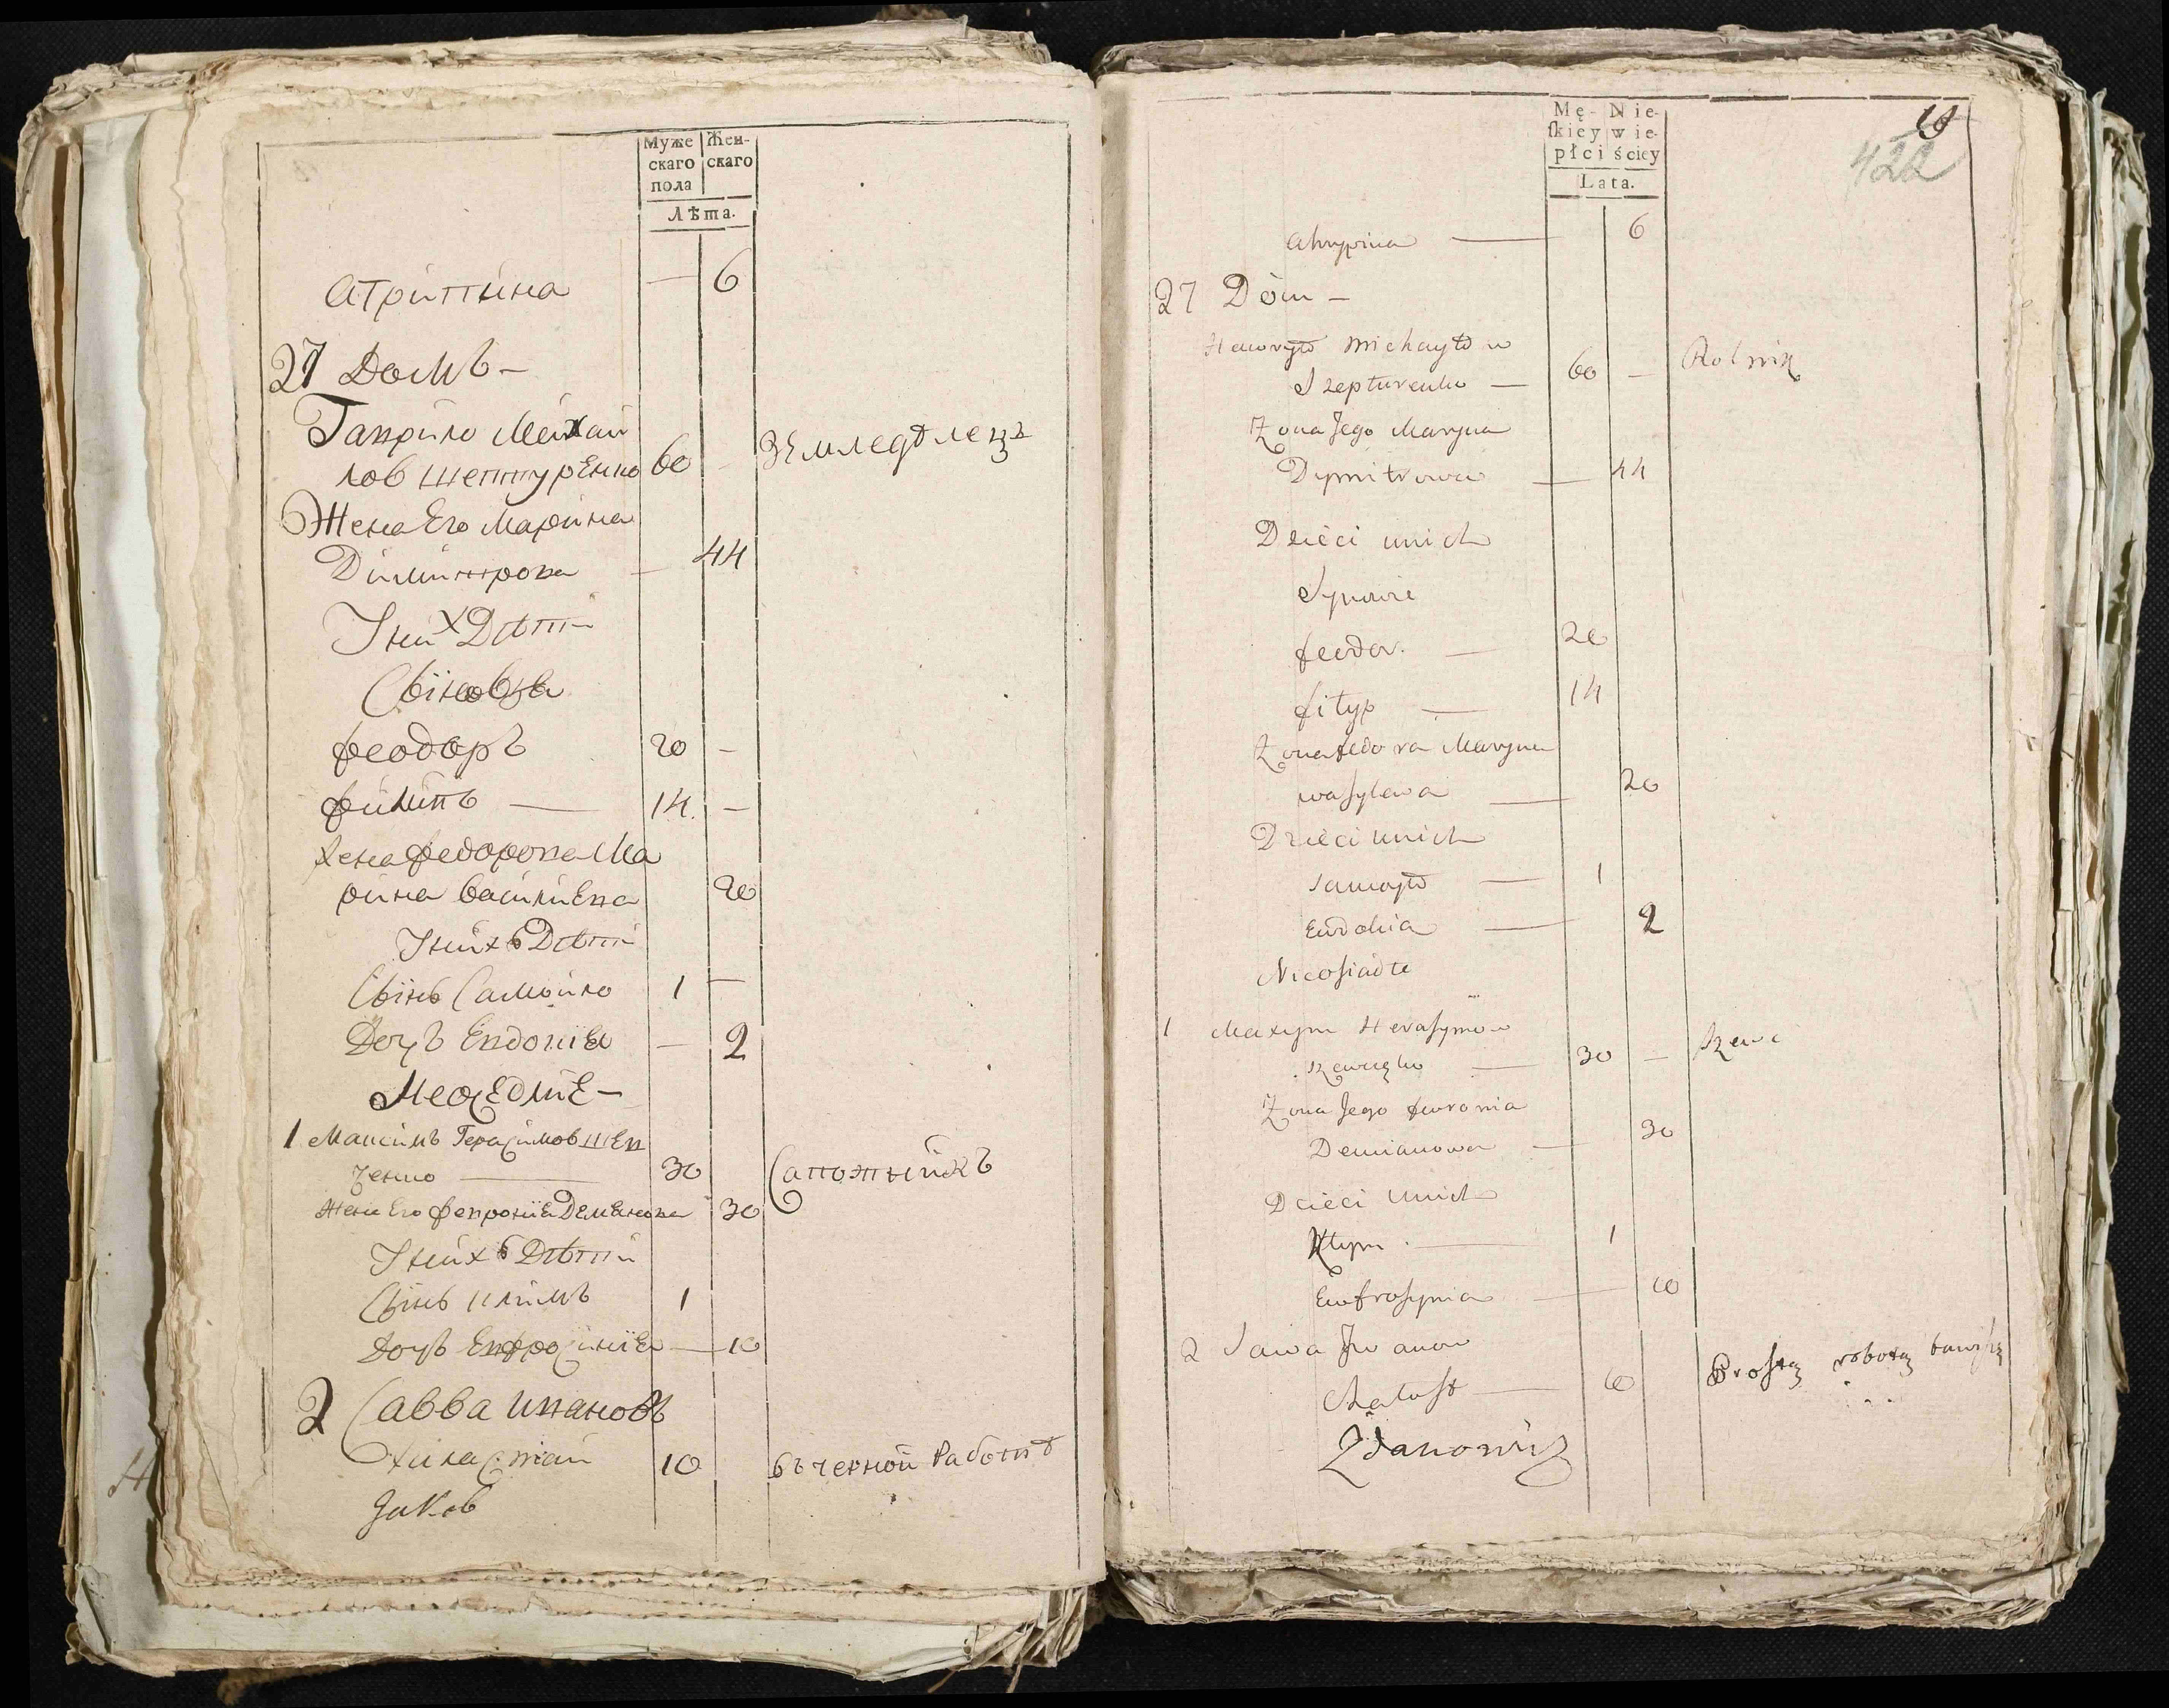 Муже Жен-
скаго скаго
пола
Лѣта.
Агрипина — 6
27 Домъ —
Гаврило Михай
лов Шептуренко 60 — Земледѣлецъ
Жена Его Марина
Димитрова — 44
У них Дѣти
Сыновья
Феодоръ 20 —
Филипъ — 14. —
Жена Федорова Ма
рина Василиева 20
У нихъ Дѣти
Сынъ Самойло 1 —
Дочь Евдокия — 2
Неоседлие —
1 Максимъ Герасимов Шев
ченко — 30 Сапожникъ
Жена Его Феврония Демянова 30
У нихъ Дѣти
Сынъ Климъ 1
Дочь Ефросиния — 10
2 Савва Ивановъ
Холастай 10 В черной Работѣ
Яков
Mę- Nie-
ſkiey wie-
płci ściey
Lata.
10
422
Ahrypina — 6
27 Dóm —
Hawryło Michayłow
Szepturenko — 60 — Rolnik
Żona Jego Maryna
Dymitrowa — 44
Dzieci u nich
Synowie
Feodor. — 20
Filyp — 14
Żona Fedora Maryna
Wasylewa — 20
Dzieci u nich
Samoyło — 1
Eudokia — 2
Nieosiadłe
1 Maxym Herasymow
Szewczęko — 30 — Szewc
Żona Jego Fewronia
Demianowa — 30
Dzieci u nich
Klym. — 1
Eufrosynia — 10
2 Sawa Iwanow
Chałast — 10 Prostą robotą bawi się